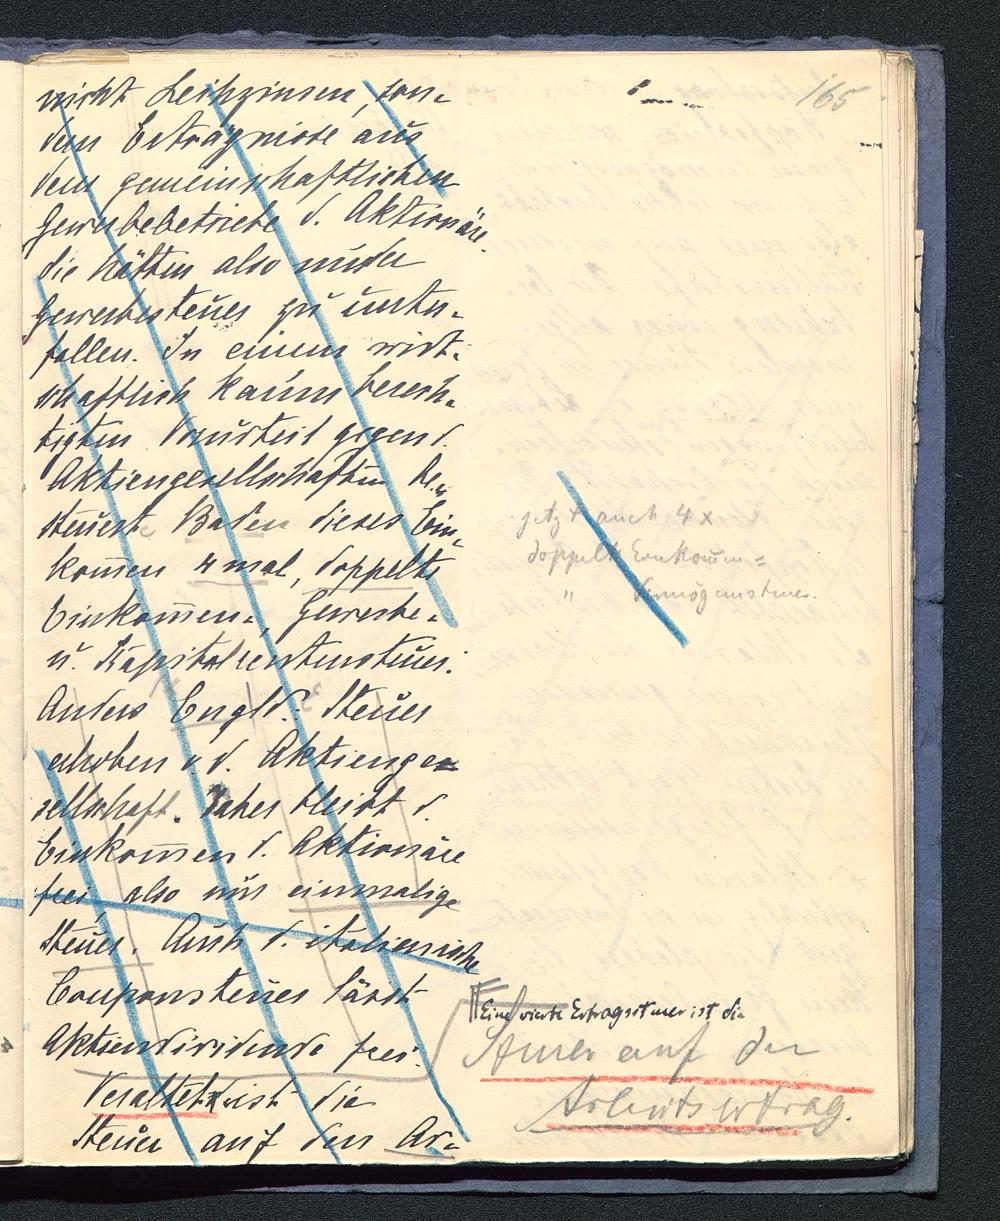 165
nicht Leihzinsen, son-
dern Erträgnisse aus
dem gemeinschaftlichen
Gewerbebetriebe d. Aktionäre.
die hätten also unter
Gewerbesteuer zu unter-
fallen. In einem wirt-
schaftlich kaum berech-
tigten Vorurteil gegen d.
Aktiengesellschaften be-
steuerte Baden dieses Ein-
kom̄en 4 mal, doppelte
Einkom̄en-, Gewerbe-
u. Kapitalrentensteuer.
Anders Engld.: Steuer
erhoben v. d. Aktienge-
sellschaft. Daher bleibt d.
Einkom̄en d. Aktionäre
frei, also nur einmalige
Steuer. Auch d. italienische
Couponsteuer lässt
Aktiendividende frei.
Veraltet ist die
Steuer auf den Ar-
jetzt auch 4 x
doppelte Einkom̄en=
" Vermögenssteuer.
Eine vierte Ertragssteuer ist die
Steuer auf den
Arbeitsertrag.